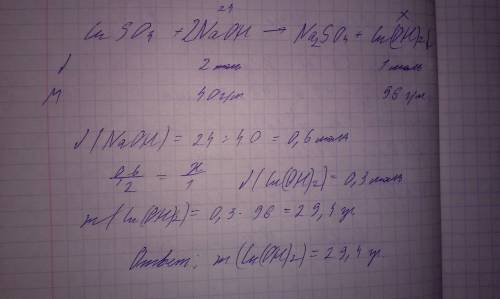 24 x
CuSO4 + 2NaOH → Na2SO4 + Cu(OH)2↓
ν 2 моль 1 моль
M 40 гр. 98 гр.
ν(NaOH) = 24 : 40 = 0,6 моль
0,6/2 = x/1 ν(Cu(OH)2) = 0,3 моль
m(Cu(OH)2) = 0,3 · 98 = 29,4 гр
Ответ: m(Cu(OH)2) = 29,4 гр.